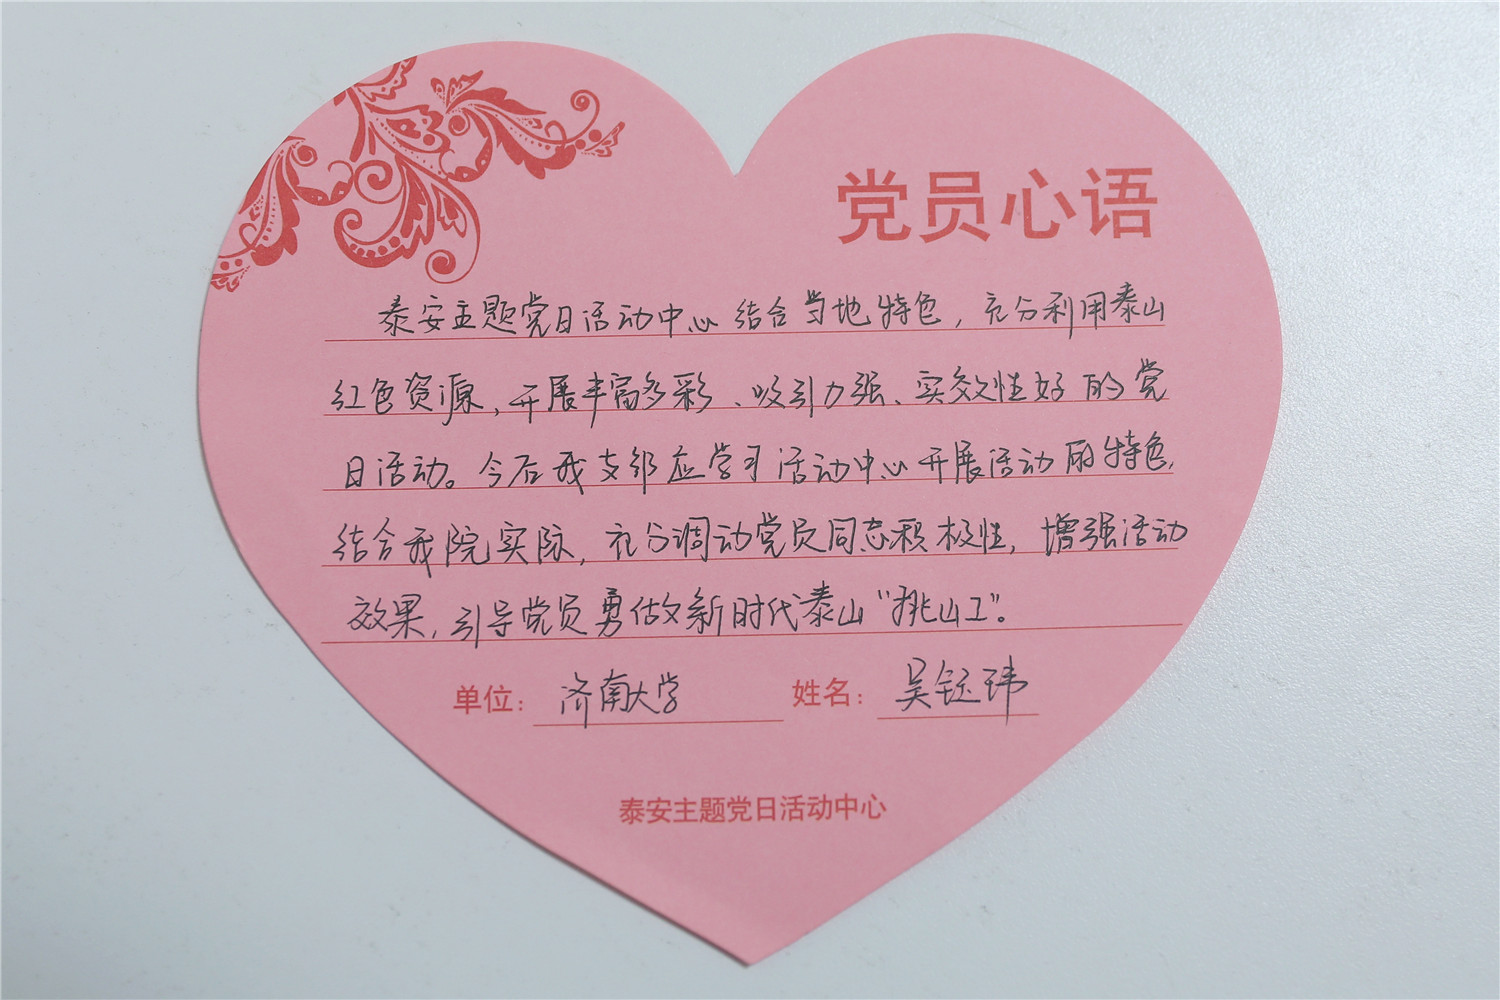 党员心语
泰安主题党日活动中心结合当地特色，充分利用泰山
红色资源，开展丰富多彩、吸引力强、实效性好的党
日活动。今后我支部应学习活动中心开展活动的特色，
结合我院实际，充分调动党员同志积极性，增强活动
效果，引导党员勇做新时代泰山“挑山工”。
单位：济南大学 姓名：吴钰玮
泰安主题党日活动中心